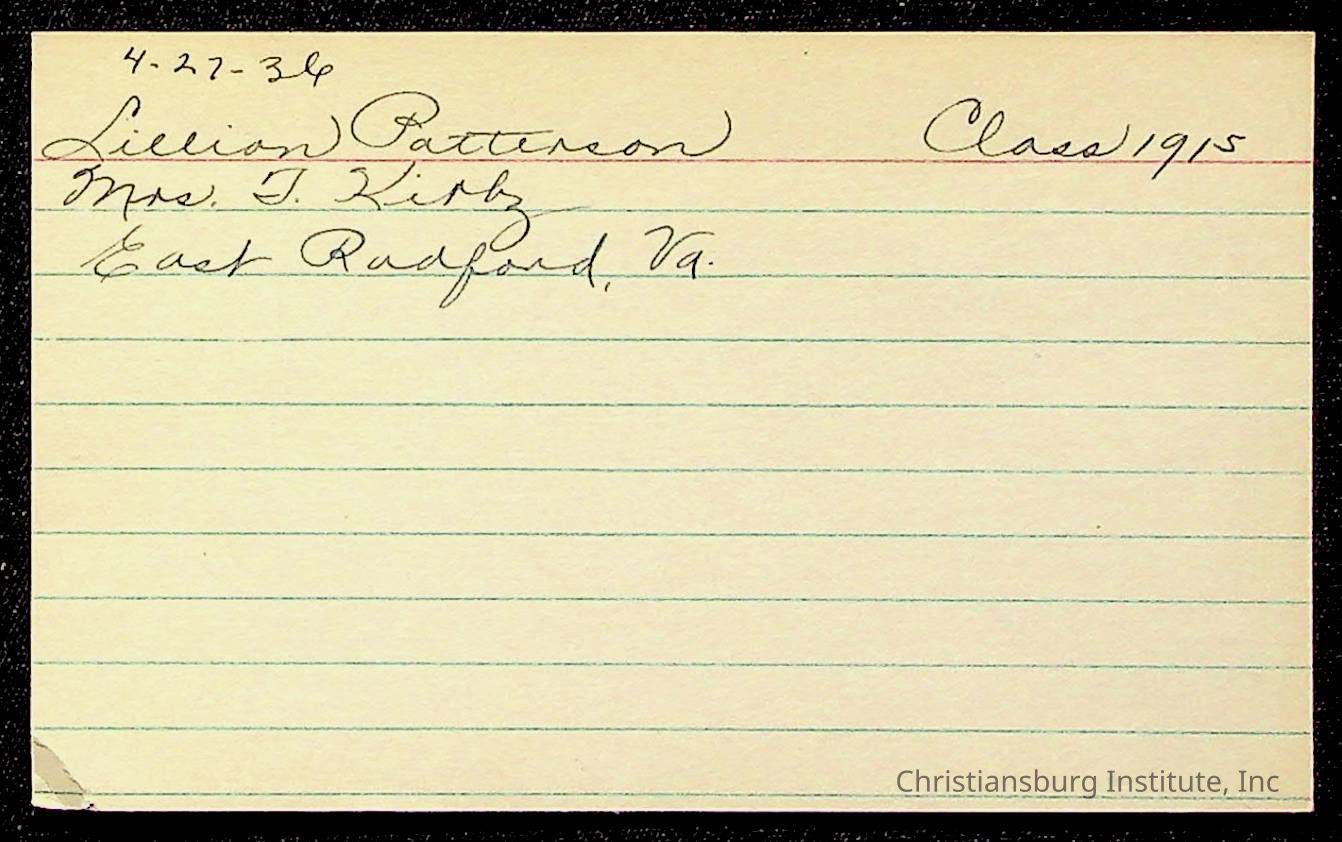 4-27-36
Lillian Patterson Class 1915
Mrs. T. Kirby
East Radford, Va.
Christiansburg Institute, Inc